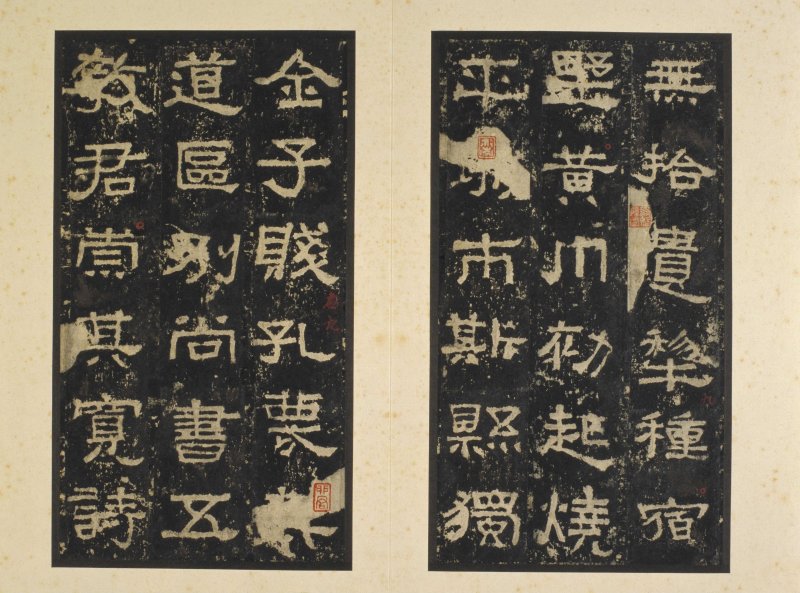 無拾遺犂種宿
墅黃巾初起燒
平市斯縣獨
全子賤孔蔑其
道區別尚書五
教君崇其寬詩